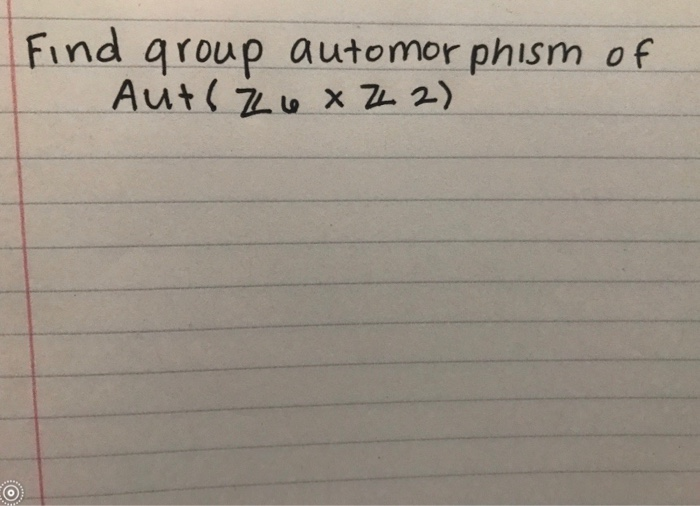 Find group automorphism of
Aut(ℤ6 x ℤ2)